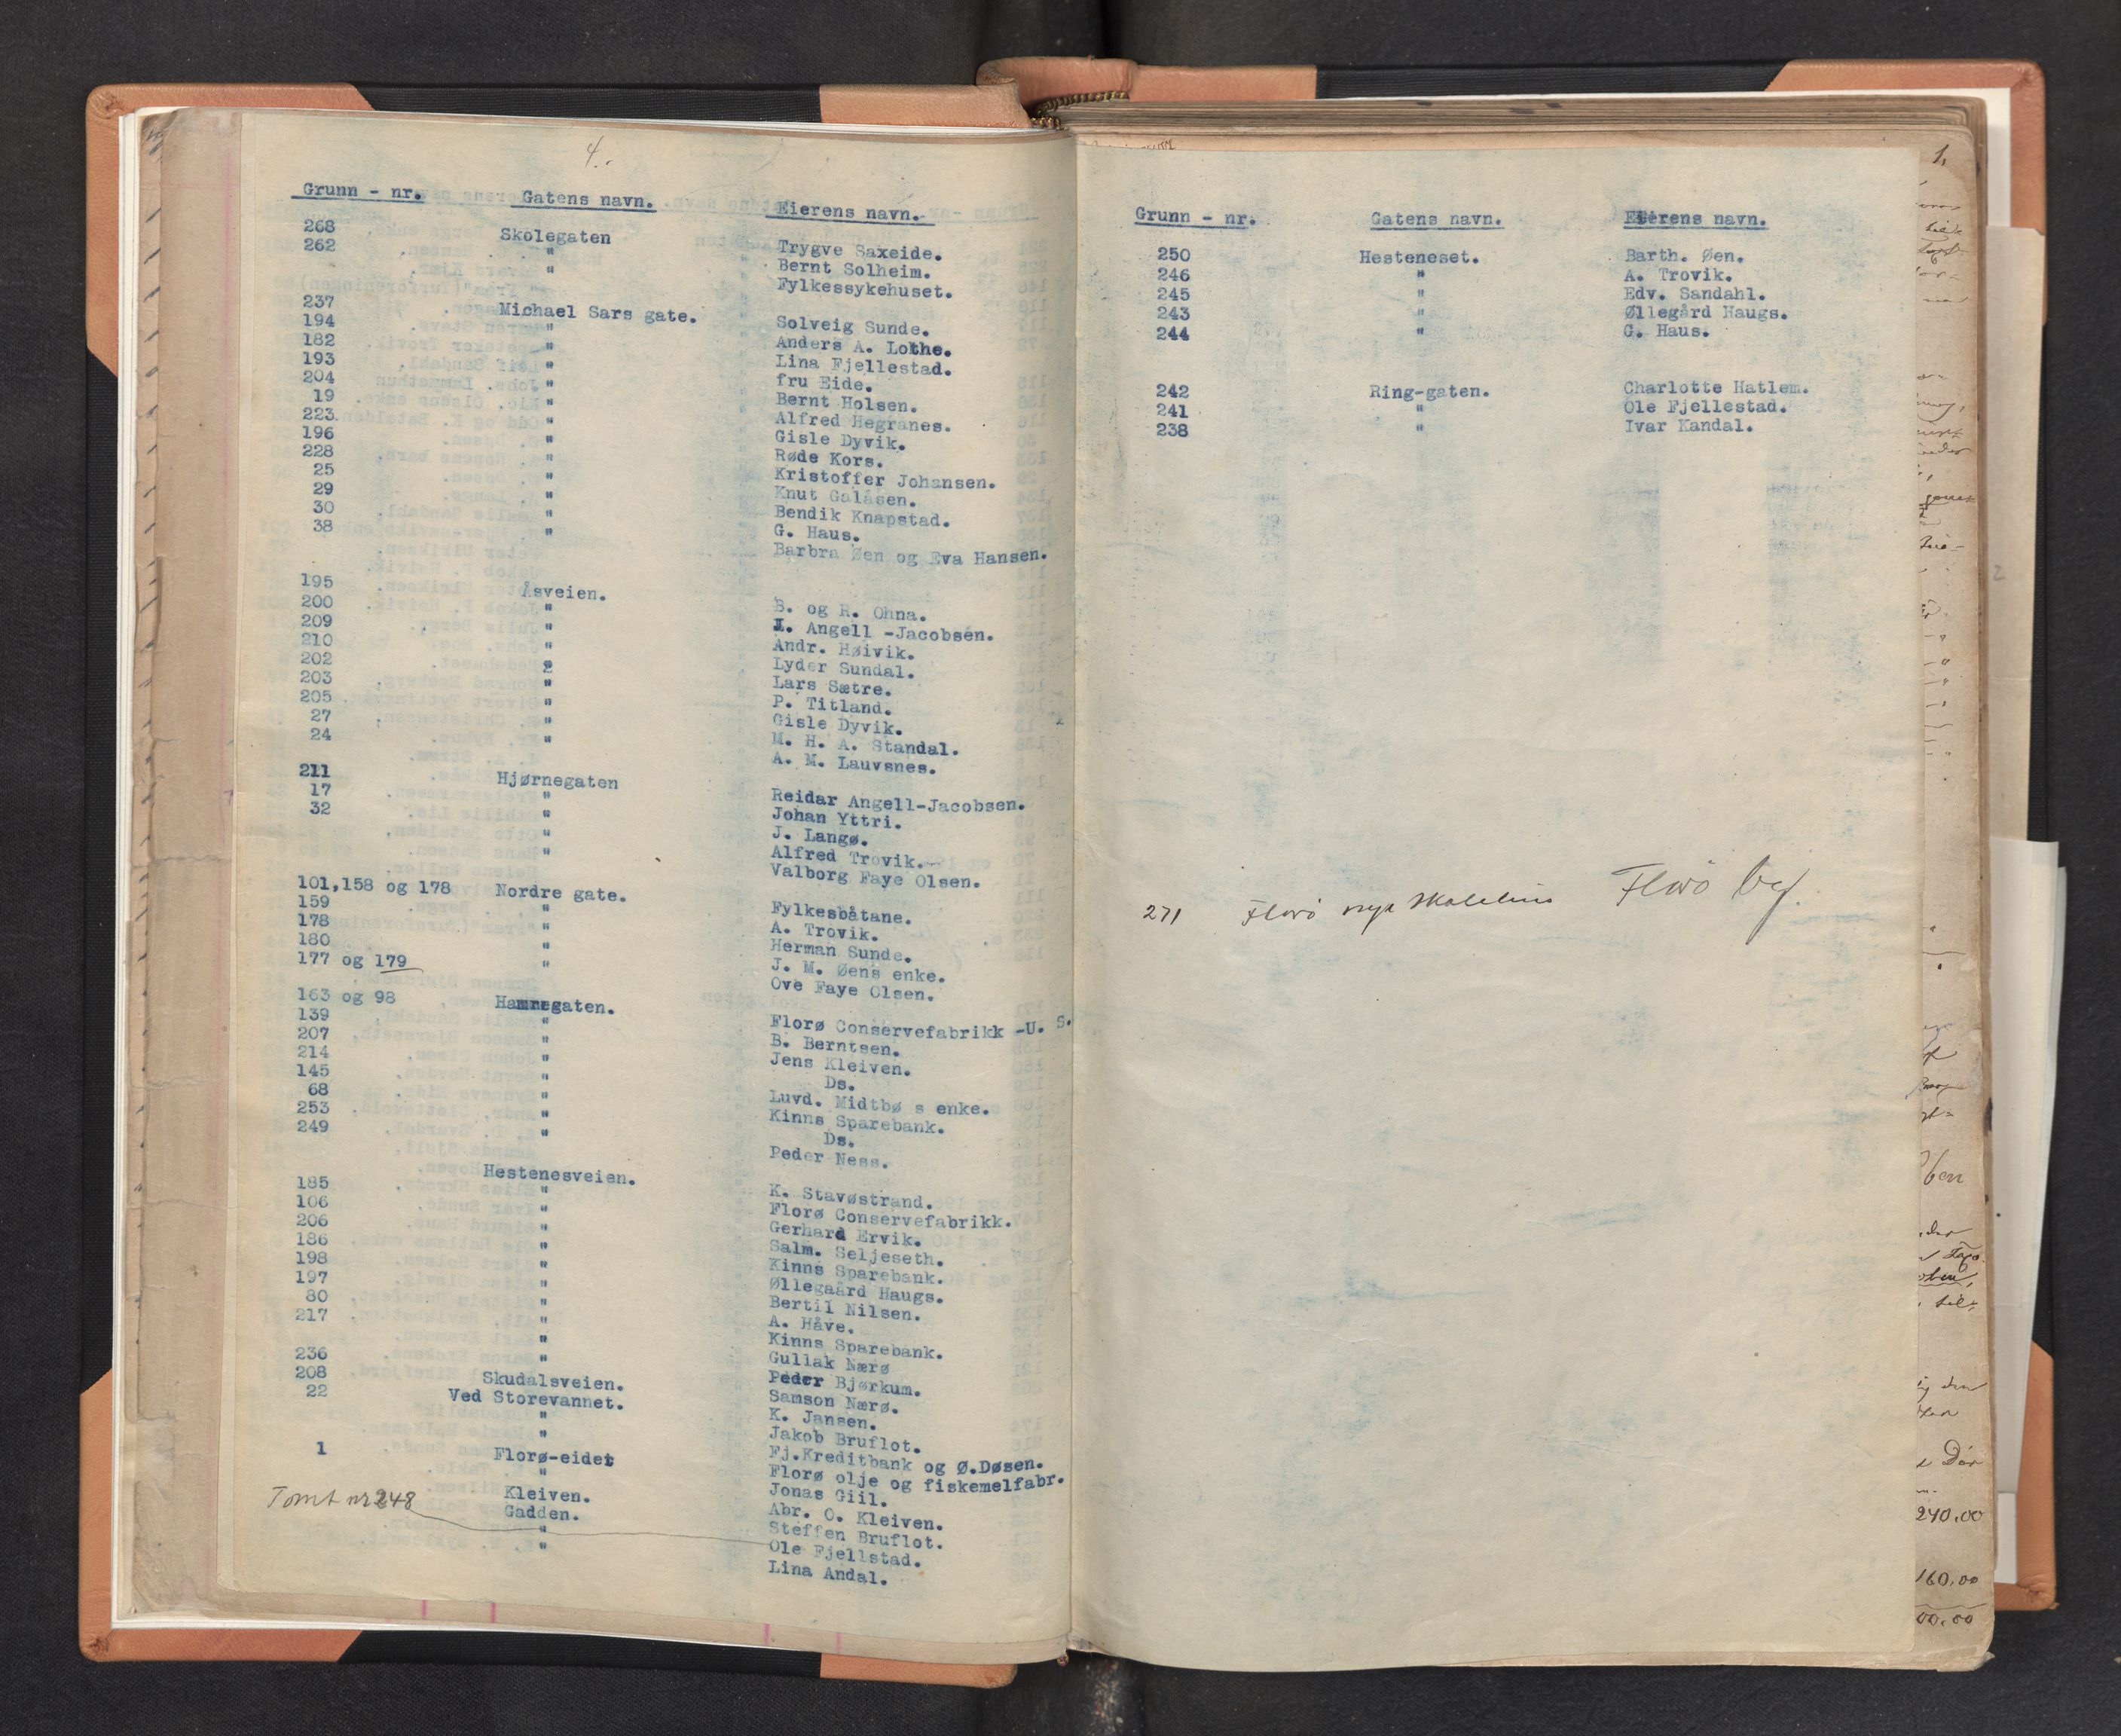 4.
Grunn - nr. Gatens navn. Eierens navn.
268 Skolegaten Trygve Saxeide.
262 " Bernt Solheim.
" Fylkessykehuset.
237 Michael Sars gate. Solveig Sunde.
194 " Anders A. Lothe.
182 " Lina Fjellestad.
193 " fru Eide.
204 " Bernt Holsen.
19 " Alfred Hegranes.
223 " Gisle Dyvik.
196 " Røde Kors.
228 " Kristoffer Johansen.
25 " Knut Galåsen.
29 " Bendik Knapstad.
30 " G. Haus.
38 " Barbra Øen og Eva Hansen.
195 Åsveien. B. og R. Ohna.
200 " I. Angell -Jacobsen.
209 " Andr. Høivik.
210 " Lyder Sundal.
202 " Lars Sætre.
203 " P. Titland.
205 " Gisle Dyvik.
27 " M. H. A. Standal.
24 " A. M. Lauvsnes.
211 Hjørnegaten Reidar Angell-Jacobsen.
17 " Johan Yttri.
32 " J. Langø.
" Alfred Trovik.
" Valborg Faye Olsen.
101,158 og 178 Nordre gate. Fylkesbåtane.
159 " A. Trovik.
178 " Herman Sunde.
180 " J. M. Øens enke.
177 og 179 " Ove Faye Olsen.
163 og 98 Hamregaten. Florø Conservefabrikk -U. S.
139 " B. Berntsen.
207 " Jens Kleiven.
214 " Ds.
145 " Luvd. Midtbø s enke.
68 " Kinns Sparebank.
253 " Ds.
249 " Peder Ness.
Hestenesveien. K. Stavøstrand.
185 " Florø Conservefabrikk.
106 " Gerhard Ervik.
206 " Salm. Seljeseth.
186 " Kinns Sparebank.
198 " Øllegaard Haugs.
197 " Bertil Nilsen.
80 " A. Håve.
217 " Kinns Sparebank.
" Gullak Nærø
236 " Peder Bjørkum.
208 Skudalsveien. Samson Nærø.
22 Ved Storevannet. K. Jansen.
" Jakob Bruflot.
Fj.Kreditbank og Ø.Døsen.
1 Florø-eidet Florø olje og fiskemelfabr.
" Jonas Giil.
Kleiven. Abr. O. Kleiven.
Gadden. Steffen Bruflot.
Tomt nr 248 " Ole Fjellstad.
" Lina Andal.
Grunn - nr. Gatens navn. Eierens navn.
250 Hesteneset. Barth. Øen.
246 " A. Trovik.
245 " Edv. Sandahl.
243 " Øllegård Haugs.
244 " G. Haus.
242 Ring-gaten. Charlotte Hatlem.
241 " Ole Fjellestad.
238 " Ivar Kandal.
271 Florö nye skolehus Florö by.
1,
240.00
160.00
00.00